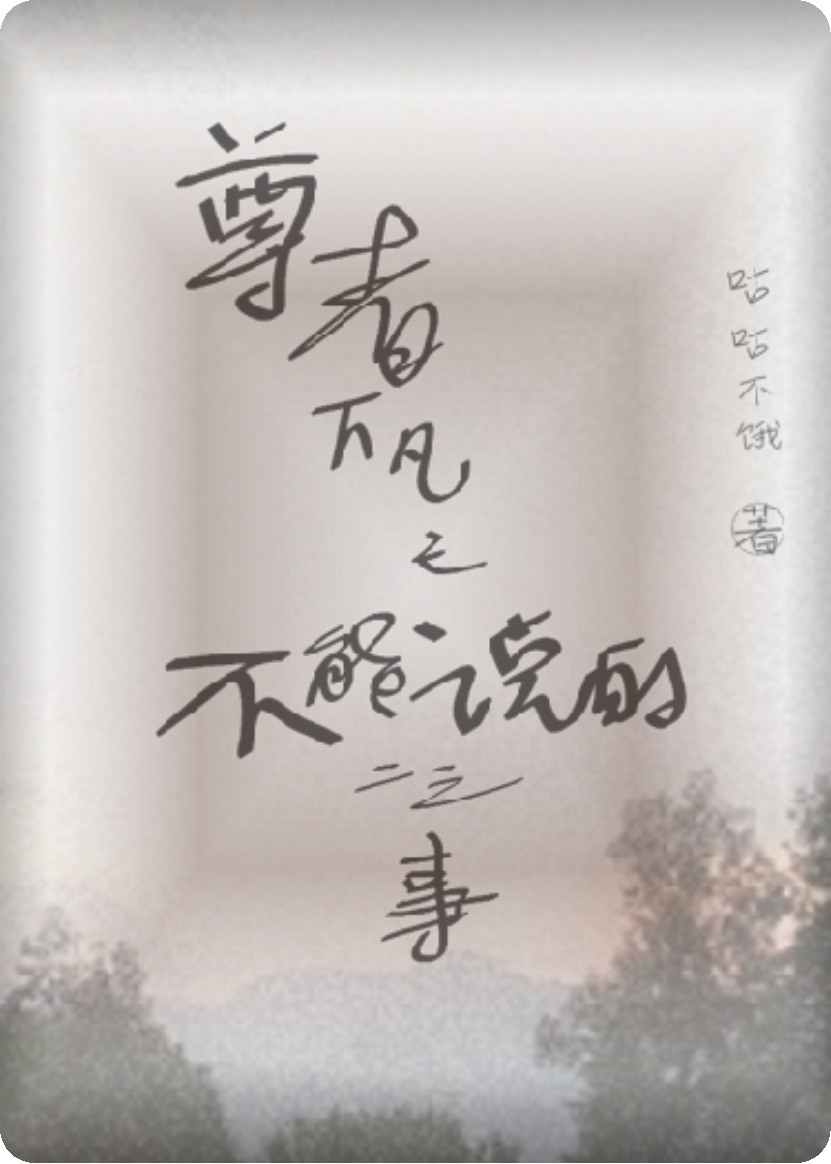 尊者
下凡
之
不能说的
二三
事
咕咕不饿 著